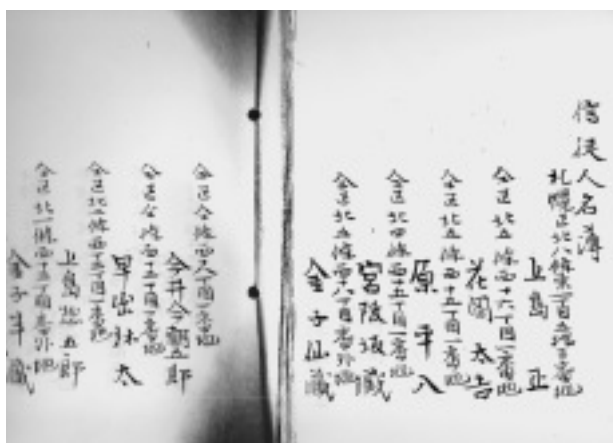 信徒人名簿
札幌区北八條東一丁目五番地
上島 正
仝区北五條西十六丁目一番地
花岡太吉
仝区北五條西十五丁目一番地
原 平八
仝区北四條西十五丁目一番地
宮
藏
仝区北五條西十八丁目一番外地
金子仙藏
仝区仝條西十八丁目一番地
今井今朝五郎
仝区仝條西十五丁目一番地
早
太
仝区北一條西十五丁目一番地
上島
五郎
仝区北一條西十五丁目一番外地
金子
藏